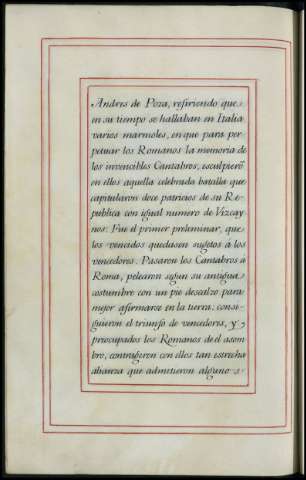 Andres de Poza, refiriendo que
en su tiempo se hallaban en Italia
varios marmoles, en que para per-
petuar los Romanos la memoria de
los invencibles Cantabros, esculpierõ
en ellos aquella celebrada batalla que
capitularon doce patricios de su Re-
publica con igual numero de Vizcay
nos: Fue el primer preliminar, que
los vencidos quedasen sugetos a los
vencedores. Pasaron los Cantabros à
Roma, pelearon segun su antigua
costumbre con un pie descalzo para
mejor afirmarse en la tierra, consi-
guieron el triunfo de vencedores, y
preocupados los Romanos de el asom
bro, contrageron con ellos tan estrecha
alianza que admitieron alguno s-